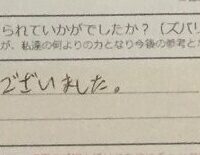 られていかがでしたか？（ズバリ
が、私達の何よりの力となり今後の参考と
ございました。